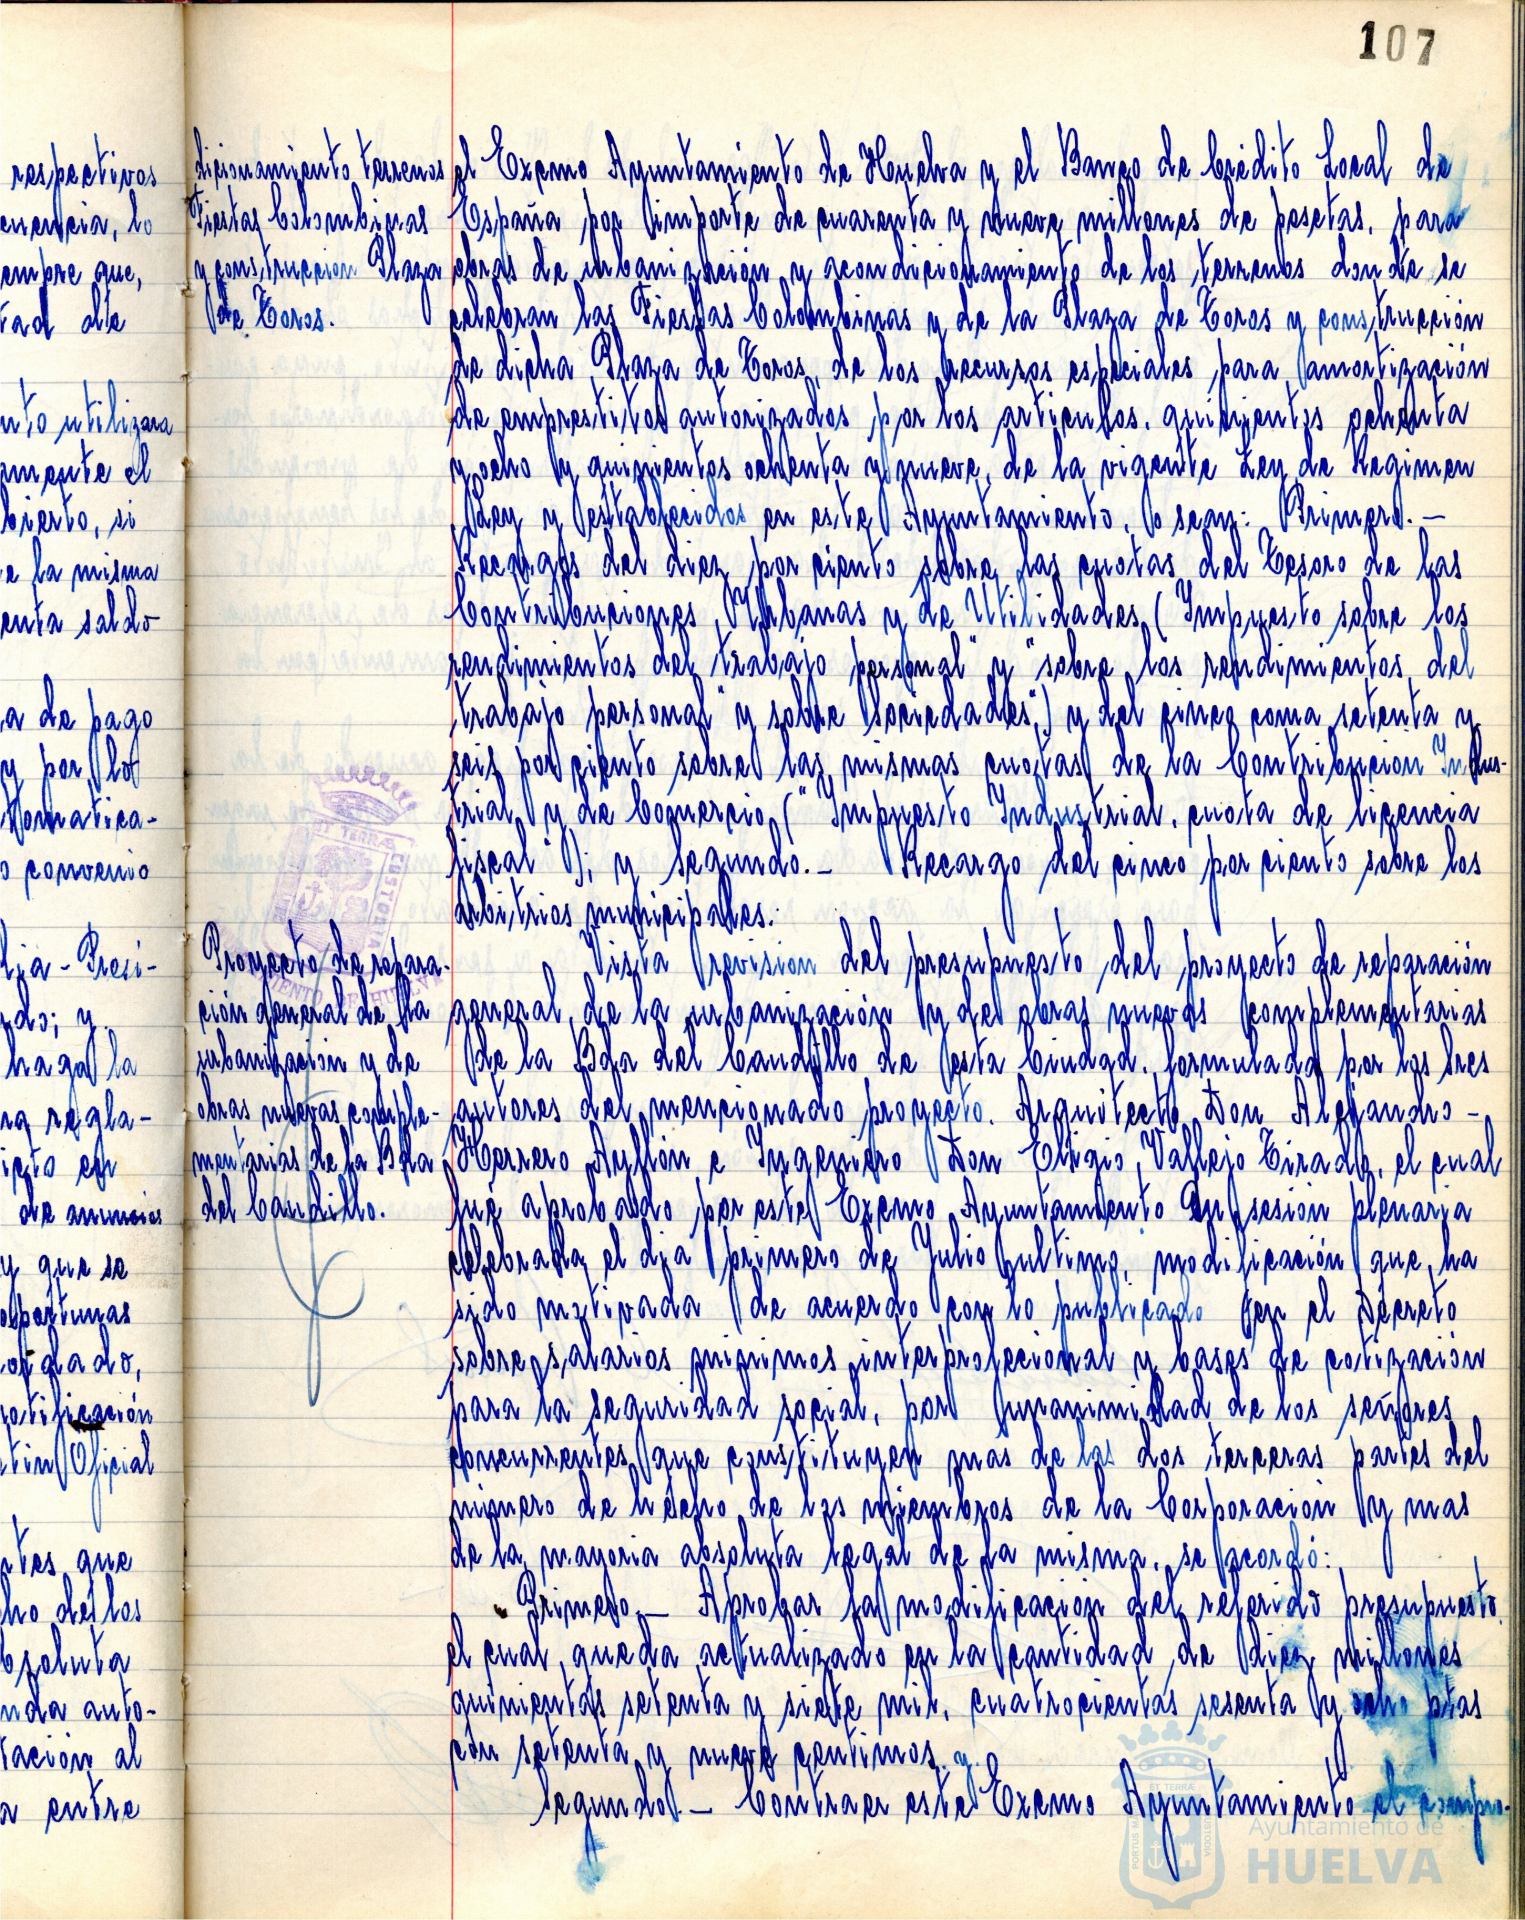 107
respectivos
uencia, lo
empre que,
tad de
nto utilizara
amente el
bierto, si
e la misma
enta saldo
a de pago
y por lo
tomatica-
o convenio
lia-Presi-
rdo; y
haga la
ra regla-
icto en
de anuncios
y que se
oportunas
orgado,
notificación
etin Oficial
ntes que
ho de los
bsoluta
nda auto-
tación al
a entre
dicionamiento terrenos
Fiestas Colombinas
y construccion Plaza
de Toros.
el Excmo Ayuntamiento de Huelva y el Banco de Crédito Local de
España por importe de cuarenta y nueve millones de pesetas, para
obras de urbanización y acondicionamiento de los terrenos donde se
celebran las Fiestas Colombinas y de la Plaza de Toros y construcción
de dicha Plaza de Toros, de los recursos especiales para amortización
de emprestitos autorizados por los articulos, quinientos ochenta
y ocho y quinientos ochenta y nueve, de la vigente Ley de Regimen
Ley y establecidos en este Ayuntamiento, o sean: Primero.—
Recargos del diez por ciento sobre las cuotas del Tesoro de las
Contribuciones, Urbanas y de Utilidades ("Impuesto sobre los
rendimientos del trabajo personal" y "sobre los rendimientos del
trabajo personal" y sobre "sociedades") y del cinco coma setenta y
seis por ciento sobre las mismas cuotas de la Contribucion Indus-
trial y de Comercio ("Impuesto Industrial, cuota de licencia
fiscal"); y Segundo.— Recargo del cinco por ciento sobre los
arbitrios municipales.
Proyecto de repara-
ción general de la
urbanización y de
obras nuevas comple-
mentarias de la Bda
del Caudillo.
Vista revision del presupuesto del proyecto de reparación
general de la urbanización y de obras nuevas complementarias
de la Bda del Caudillo de esta Ciudad, formulada por los Sres
autores del mencionado proyecto, Arquitecto Don Alejandro-
Herrero Ayllón e Ingeniero Don Eligio Vallejo Tirado, el cual
fué aprobado por este Excmo Ayuntamiento en sesión plenaria
celebrada el dia primero de Julio ultimo, modificación que ha
sido motivada de acuerdo con lo publicado en el Decreto
sobre salarios minimos interprofecional y bases de cotización
para la seguridad social, por unanimidad de los señores
concurrentes que constituyen mas de las dos terceras partes del
número de hecho de los miembros de la Corporación y mas
de la mayoria absoluta legal de la misma, se acordó:
Primero.— Aprobar la modificación del referido presupuesto
el cual queda actualizado en la cantidad de diez millones
quinientas setenta y siete mil, cuatrocientas sesenta y ocho ptas
con setenta y nueve centimos y
Segundo.— Contraer este Excmo Ayuntamiento el compro-
Ayuntamiento de
HUELVA